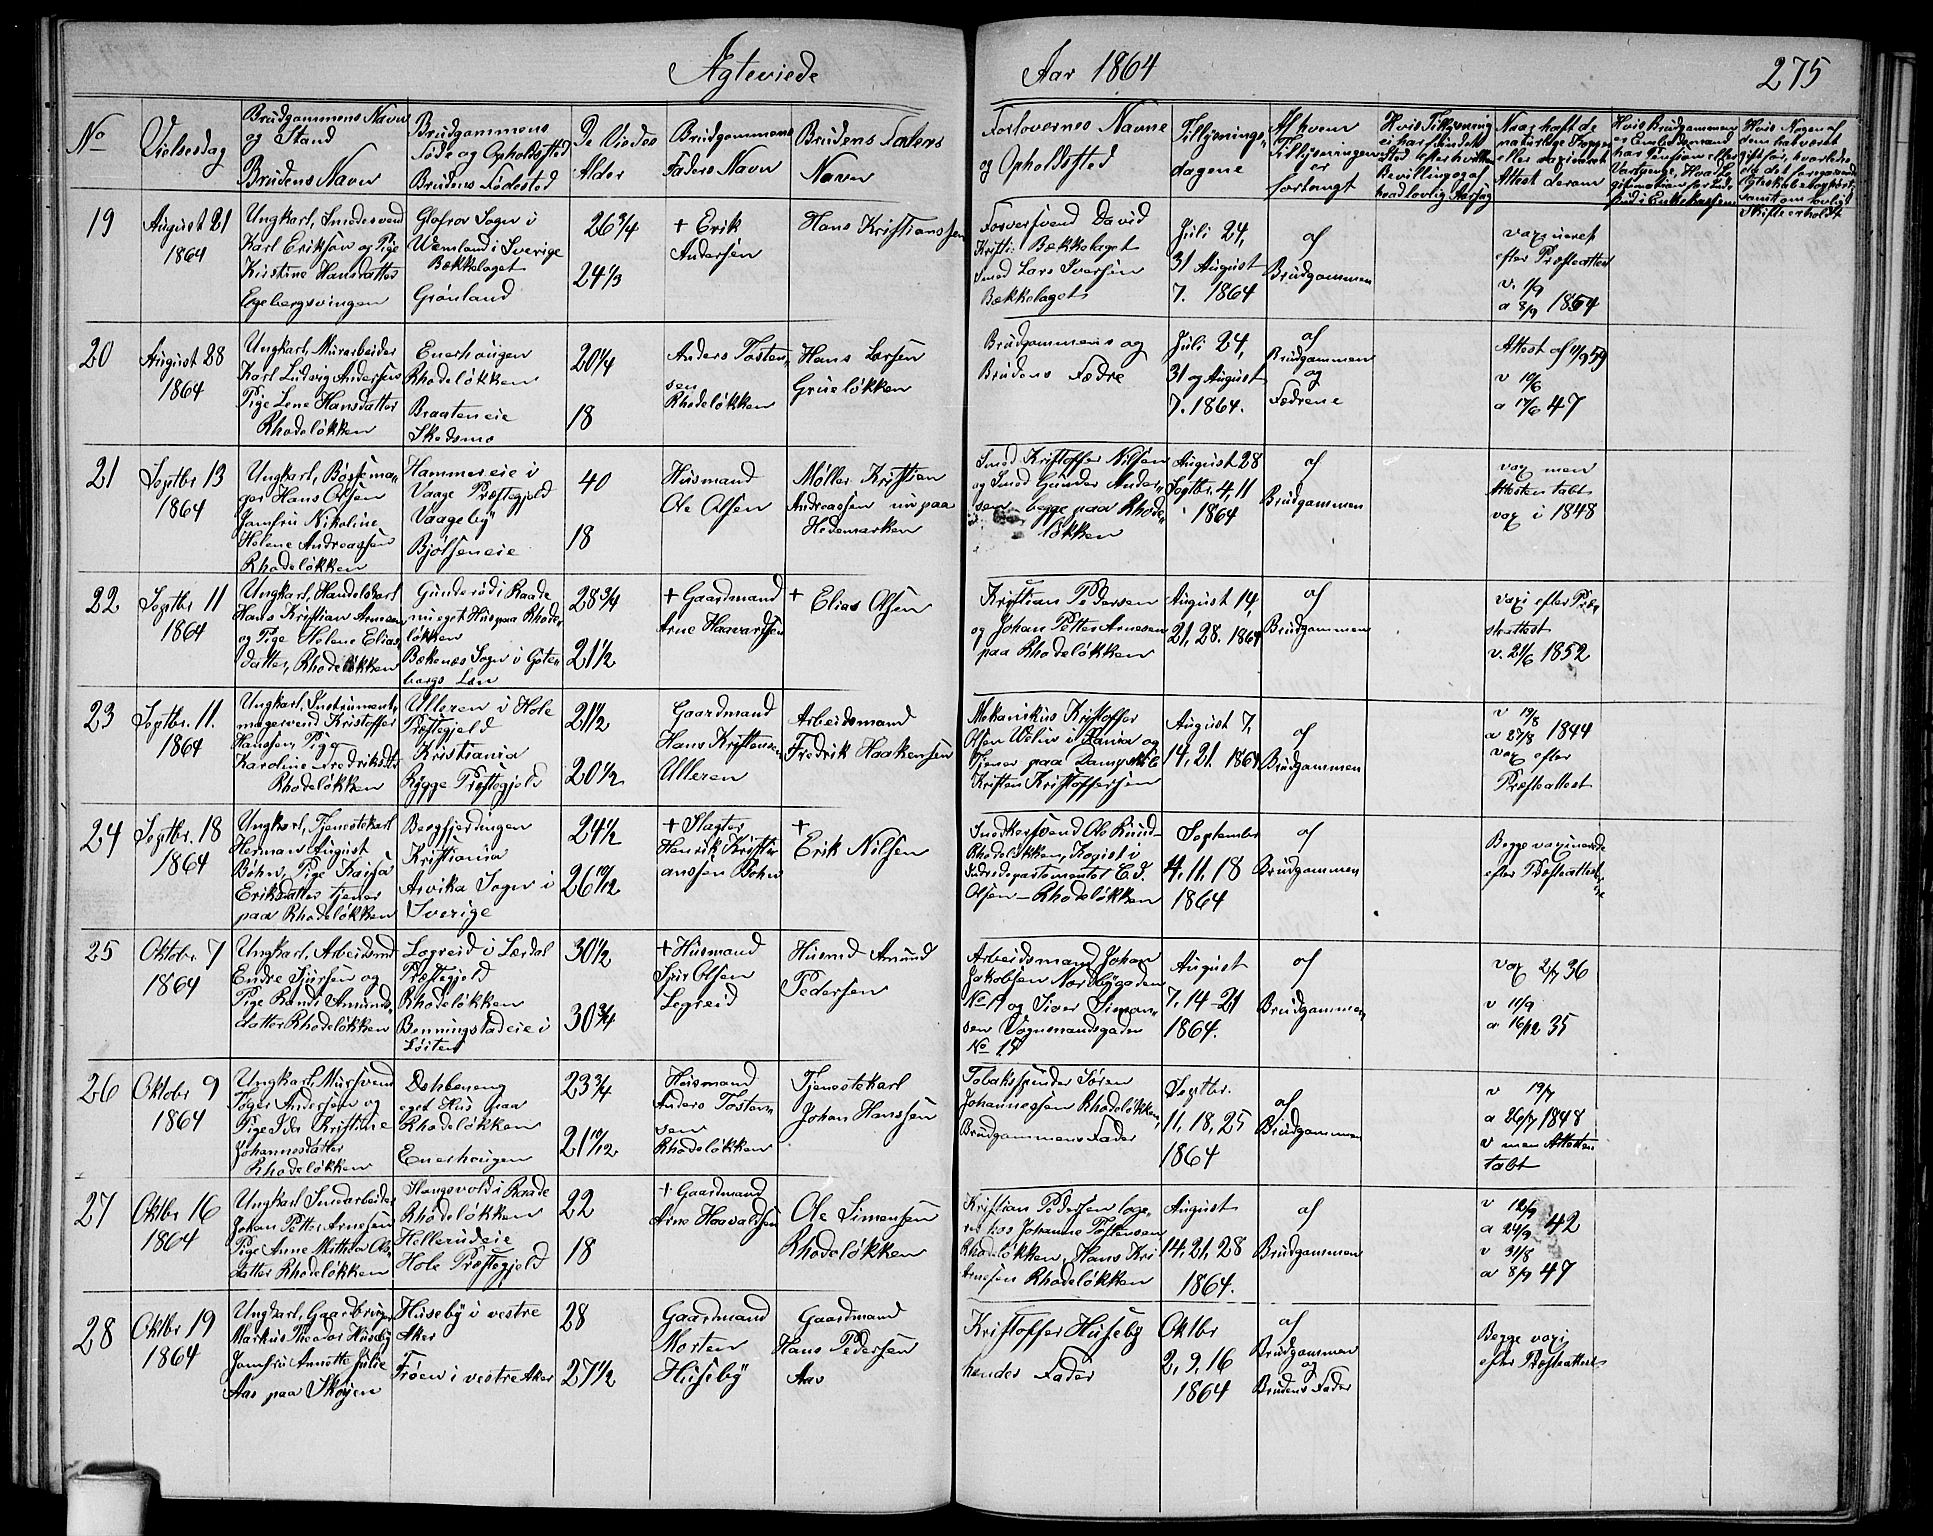 Ægteviede
Aar 1864
275
No
Vielsesdag
Brudgommens Navn
og Stand
Brudens Navn
Brudgommens
Føde og Opholdssted
Brudens Fødested
De Viedes
Alder
Brudgommens
Faders Navn
Brudens Faders
Navn
Forlovernes Navne
og Opholdssted
Tillysnings-
dagene
Af hvem
Tillysningen
er
forlangt
19
August 21
1864
Ungkarl, Smedesvend
Karl Eriksøn og Pige
Kirstine Hansdatter
Egebergsvingen
Glofrov Sogn i
Wemland i Sverige
Bækkelaget
Grønland
26 3/4
24 1/3
+ Erik
Andersen
Hans Kristianssen
Farversvend David
Bækkelaget
Smed Lars Iversen
Bækkelaget
Juli 24,
31 August
7. 1864
af
Brudgommen
vaxineret
efter Præsteattest
v. 1/9
a 8/9 1854
20
August 28
1864
Ungkarl, Murarbeider
Karl Ludvig Andersen
Pige Lene Hansdatter
Rhodeløkken
Enerhougen
Rhodeløkken
Braateneie
Skedsmo
20 1/4
18
Anders Tosten-
sen
Rhodeløkken
Hans Larsen
Grueløkken
Brudgommens og
Brudens Fædre
Juli 24,
31 og August
7. 1864.
af
Brudgommen
og
Fædrene
Attest af 11/9 59
v 10/6
a 17/6 47
21
Septbr. 13
1864
Ungkarl, Bøssema-
ger Hans Olsen
Jomfru Nikoline
Helene Andreassen
Rhodeløkken
Hammereie i
Vaage Præstegjeld
Vaageby
Bjølseneie
40
18
Husmand
Ole Olsen
Møller Kristian
Andreassen nu paa
Hedemarken
Smed Kristoffer Nilsen
og Smed Gunder Ander-
sen begge paa Rhode-
løkken
August 28
Septbr. 4, 11
1864
af
Brudgommen
vax men
Attesten tabt
vax i 1848
22
Septbr 11
1864
Ungkarl, Handelskarl
Hans Kristian Arnesen
og Pige Helene Elias-
datter, Rhodeløkken
Gunderød i Raade
nu eget Hus paa Rhode-
løkken
Bækenæs Sogn i Gøte-
borgs Len
28 3/4
21 1/2
+ Gaardmand
Arne Haavardsen
+ Elias Olsen
Kristian Pedersen
og Johan Petter Arnesen
paa Rhodeløkken
August 14,
21, 28. 1864
af
Brudgommen
vaxi efter Præ-
steattest
v. 21/6 1852
23
Septbr. 11.
1864
Ungkarl, Instrument-
magersvend Kristoffer
Hanssen, Pige
Karoline Fredriksdtr
Rhodeløkken
Ulleren i Hole
Præstegjeld
Kristiania
Rygge Præstegjeld
21 1/2
20 1/2
Gaardmand
Hans Kristensen
Ulleren
Arbeidsmand
Fredrik Haakensen
Mekanikus Kristoffer
Olsen og
Tjener paa
Kristen Kristoffersen
August 7,
14, 21. 1864
af
Brudgommen
v 19/8
a 27/8 1844
vax efter
Præsteattest
24
Septbr. 18
1864
Ungkarl, Tjenestekarl
Herman August
Bøhn, Pige Kaisa
Eriksdatter tjener
paa Rhodeløkken
Bergfjerdingen
Kristiania
Arvika Sogn i
Sverige
24 1/2
26 10/12
+ Slagter
Henrik Kristi-
anssen Bøhn
+
Erik Nilsen
Snedkersvend Ole Knud-
Rhodeløkken, Kopist i
Indredepartementet
Olsen - Rhodeløkken
September
4. 11. 18
1864
af
Brudgommen
Begge vaxinerede
efter Præsteattest
25
Oktober 7
1864
Ungkarl, Arbeidsmd
Endre Sjursen og
Pige Randi Amunds-
datter Rhodeløkken
Legreid i Lærdal
Præstegjeld
Rhodeløkken
Benningstadeie i
Løiten
30 1/2
30 3/4
+ Husmand
Sjur Olsen
Legreid
Husmd Amund
Pedersen
Arbeidsmand Johan
Jakobsen Nordbygaden
No 17 og Siver Simon-
sen Vognmandsgaden
No 15
August
7, 14 - 21
1864.
af
Brudgommen
vax 2/7 36
v 11/9
a 16/12 35
26
Oktober 9
1864
Ungkarl, Mursvend
Andersen og
Pige Ida Kristine
Johannesdatter
Rhodeløkken
eget Hus paa
Rhodeløkken
Enerhougen
23 3/4
21 10/12
Husmand
Anders Tosten-
sen
Rhodeløkken
Tjenestekarl
Johan Hanssen
Tobakspinder Søren
Johannessen Rhodeløkken,
Brudgommens Fader
Septbr.
11, 18, 25
1864
af
Brudgommen
v 19/7
a 26/7 1848
v men Attesten
tabt
27
Oktbr 16
1864
Ungkarl Smedarbeider
Johan Petter Arnesen
Pige Anne Mathea Ols-
datter Rhodeløkken
Haugsvold i Raade
Rhodeløkken
Hellerudeie
Hole Præstegjeld
22
18
+ Gaardmand
Arne Haavaldsen
Ole Simensen
Rhodeløkken
Kristian Pedersen loge-
rer hos Johanne Tostensen
Rhodeløkken, Hans Kri
Arnesen Rhodeløkken
August
14. 21, 28
1864.
af
Brudgommen
v 12/9
a 24/9 42
v 31/8
a 8/9 47
28
Oktbr 19
1864
Ungkarl, Gaardbruger
Markus Theodor Huseby
Jomfru Annette Julie
Aas paa Skøyen
Huseby i vestre
Aker
Frøen i vestre Aker
28
27 1/2
Gaardmand
Morten
Huseby
Gaardmand
Hans Pedersen
Aas
Kristoffer Huseby
hendes Fader
Oktbr
2, 9, 16
1864
af
Brudgommen
og
Brudens Fader
Begge vaxi
efter Præsteattest